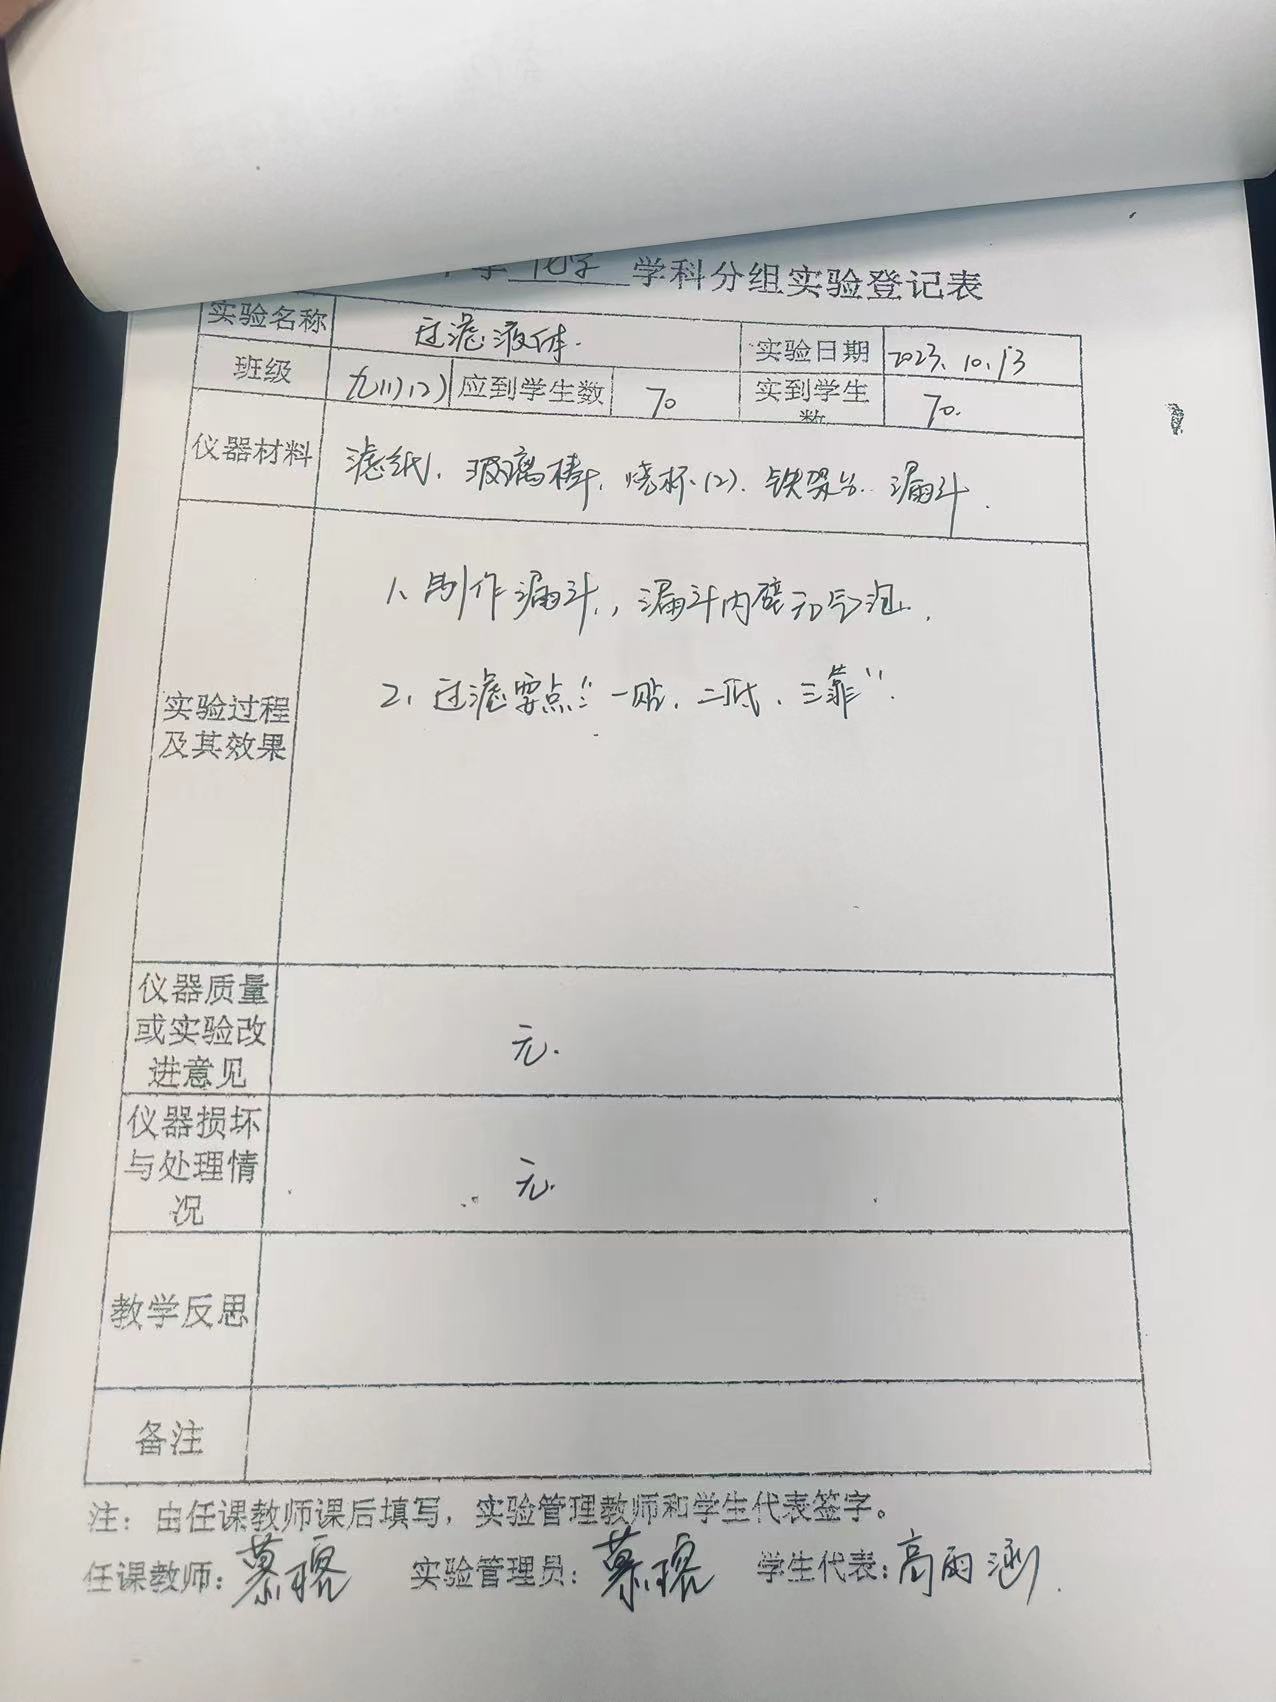 学 化学 学科分组实验登记表
实验名称 过滤液体. 实验日期 2023.10.13
班级 九(1)(2) 应到学生数 70 实到学生数 70.
仪器材料 滤纸、玻璃棒、烧杯(2)、铁架台、漏斗.
实验过程
及其效果
1、制作漏斗,漏斗内壁无气泡.
2、过滤要点:“一贴、二低、三靠”.
仪器质量
或实验改
进意见
无.
仪器损坏
与处理情
况
无.
教学反思
备注
注:由任课教师课后填写,实验管理教师和学生代表签字。
任课教师:慕 实验管理员:慕 学生代表:高雨涵